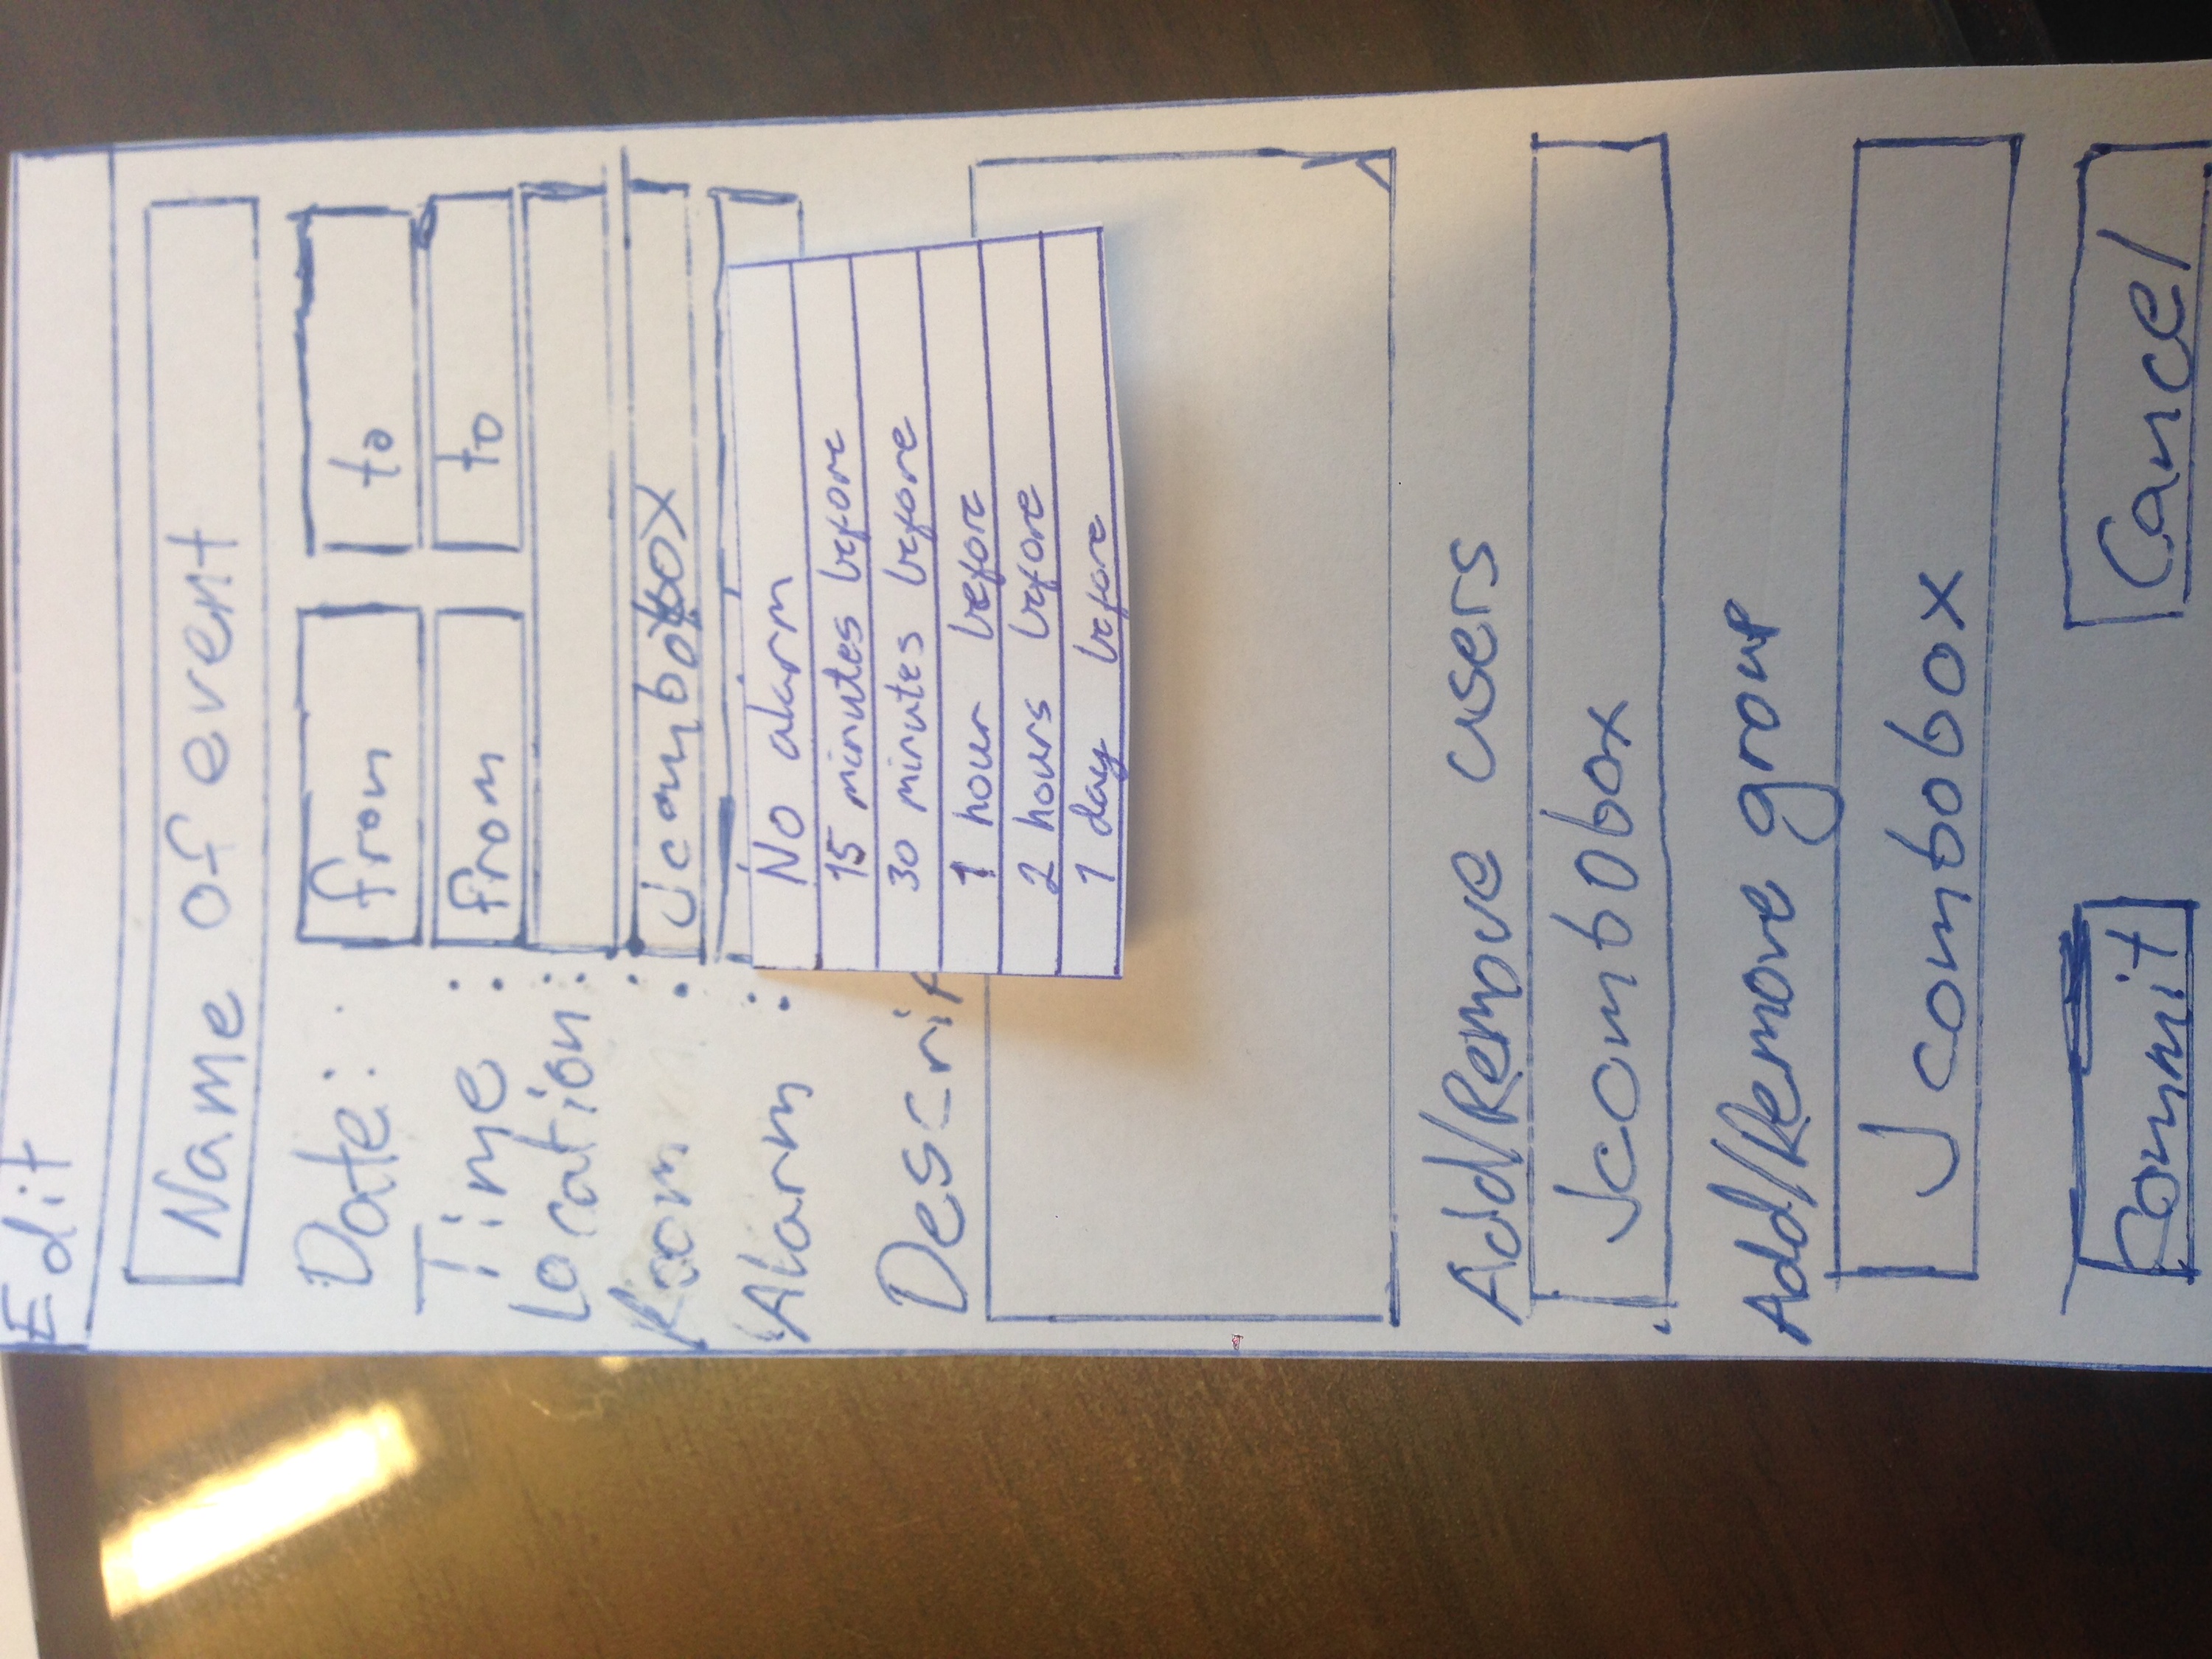 Edit
Name of event
Date: from to
Time : from to
Location :
Room : Jcombobox
Alarm :
No alarm
15 minutes before
30 minutes before
1 hour before
2 hours before
1 day before
Descrip
Add/Remove users
Jcombobox
Add/Remove group
Jcombobox
Commit Cancel